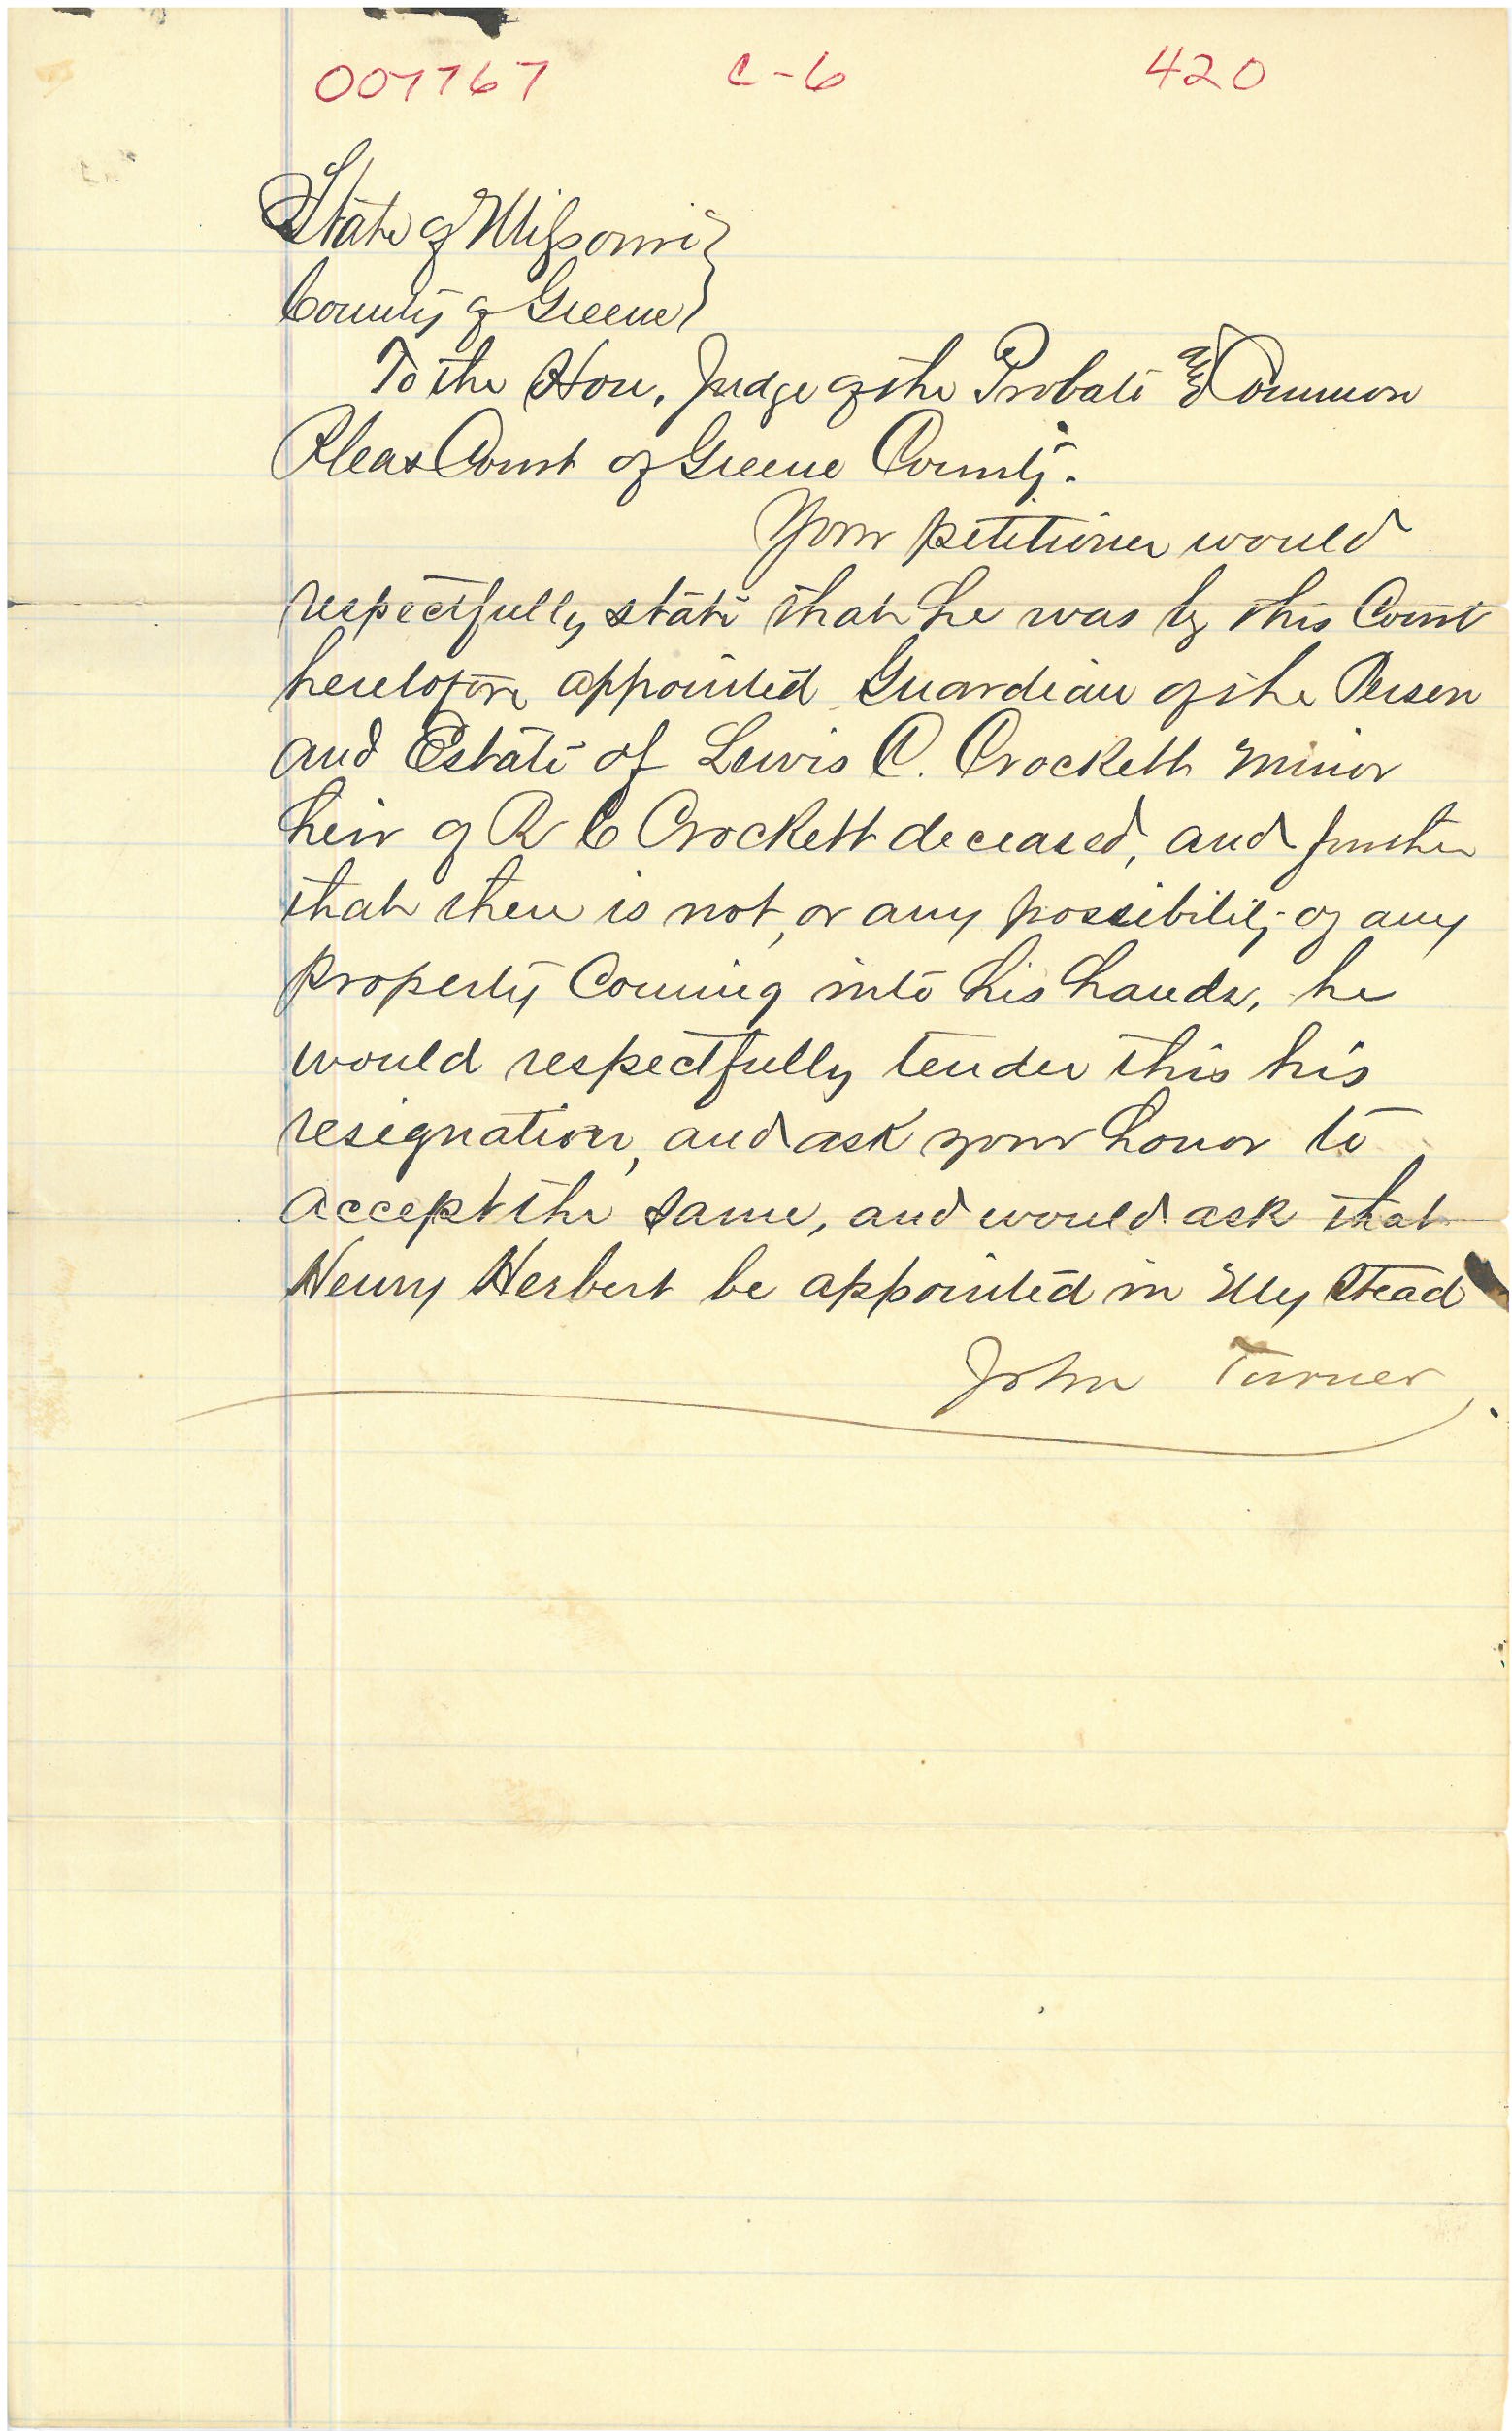 007767 C-6 420
State of Missouri }
County of Greene }
To the Hon. Judge of the Probate and Common
Pleas Court of Greene County.
Your petitioner would
respectfully state that he was by this Court
heretofore appointed Guardian of the Person
and Estate of Lewis C. Crockett minor
heir of R C Crockett deceased, and further
that there is not, or any possibility of any
property Coming into his hands, he
would respectfully tender this his
resignation, and ask your honor to
accept the same, and would ask that
Henry Herbert be appointed in My Stead
John Turner